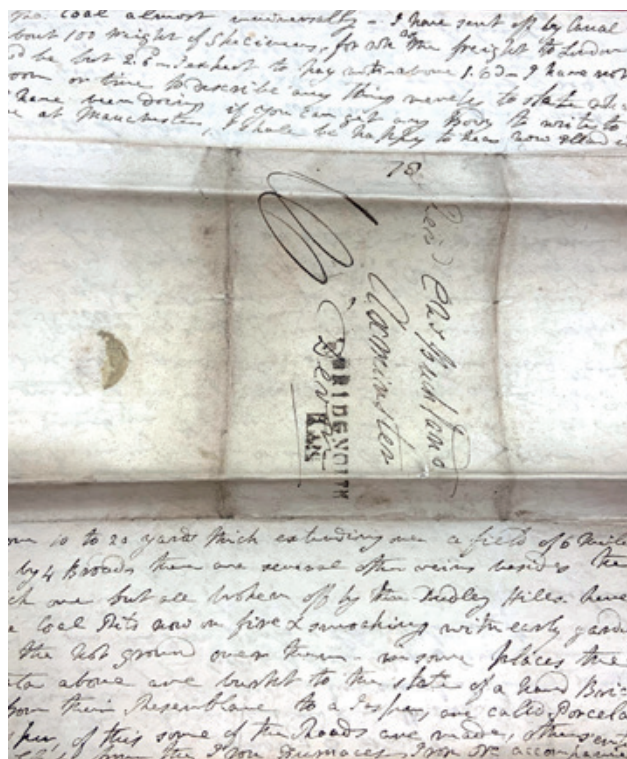 the coal almost universally - I have sent off by Canal
about 100 weight of Specimens, for the freight to London
be but 2.6 I expect to pay 1.6 I have not
room or time to describe any thing to state
have been doing if you can get any Body to write to
at Manchester, I shall be happy to hear how
78
Revd Chas Buckland
Axminster
Devon
BRIDGNORTH
10 to 20 yards thick extending over a field of 6 Miles
by 4 Broad there are several other veins besides the
one but all broken off by the Dudley Hills have
Coal Pits now on fire & smoking with early gard
the hot ground over them. in some places the
above are burnt to the state of a hard Bric
from their resemblance to a Jasper, are called Porcela
of this some of the Roads are made, others
the Iron Furnaces Iron ore accompanie